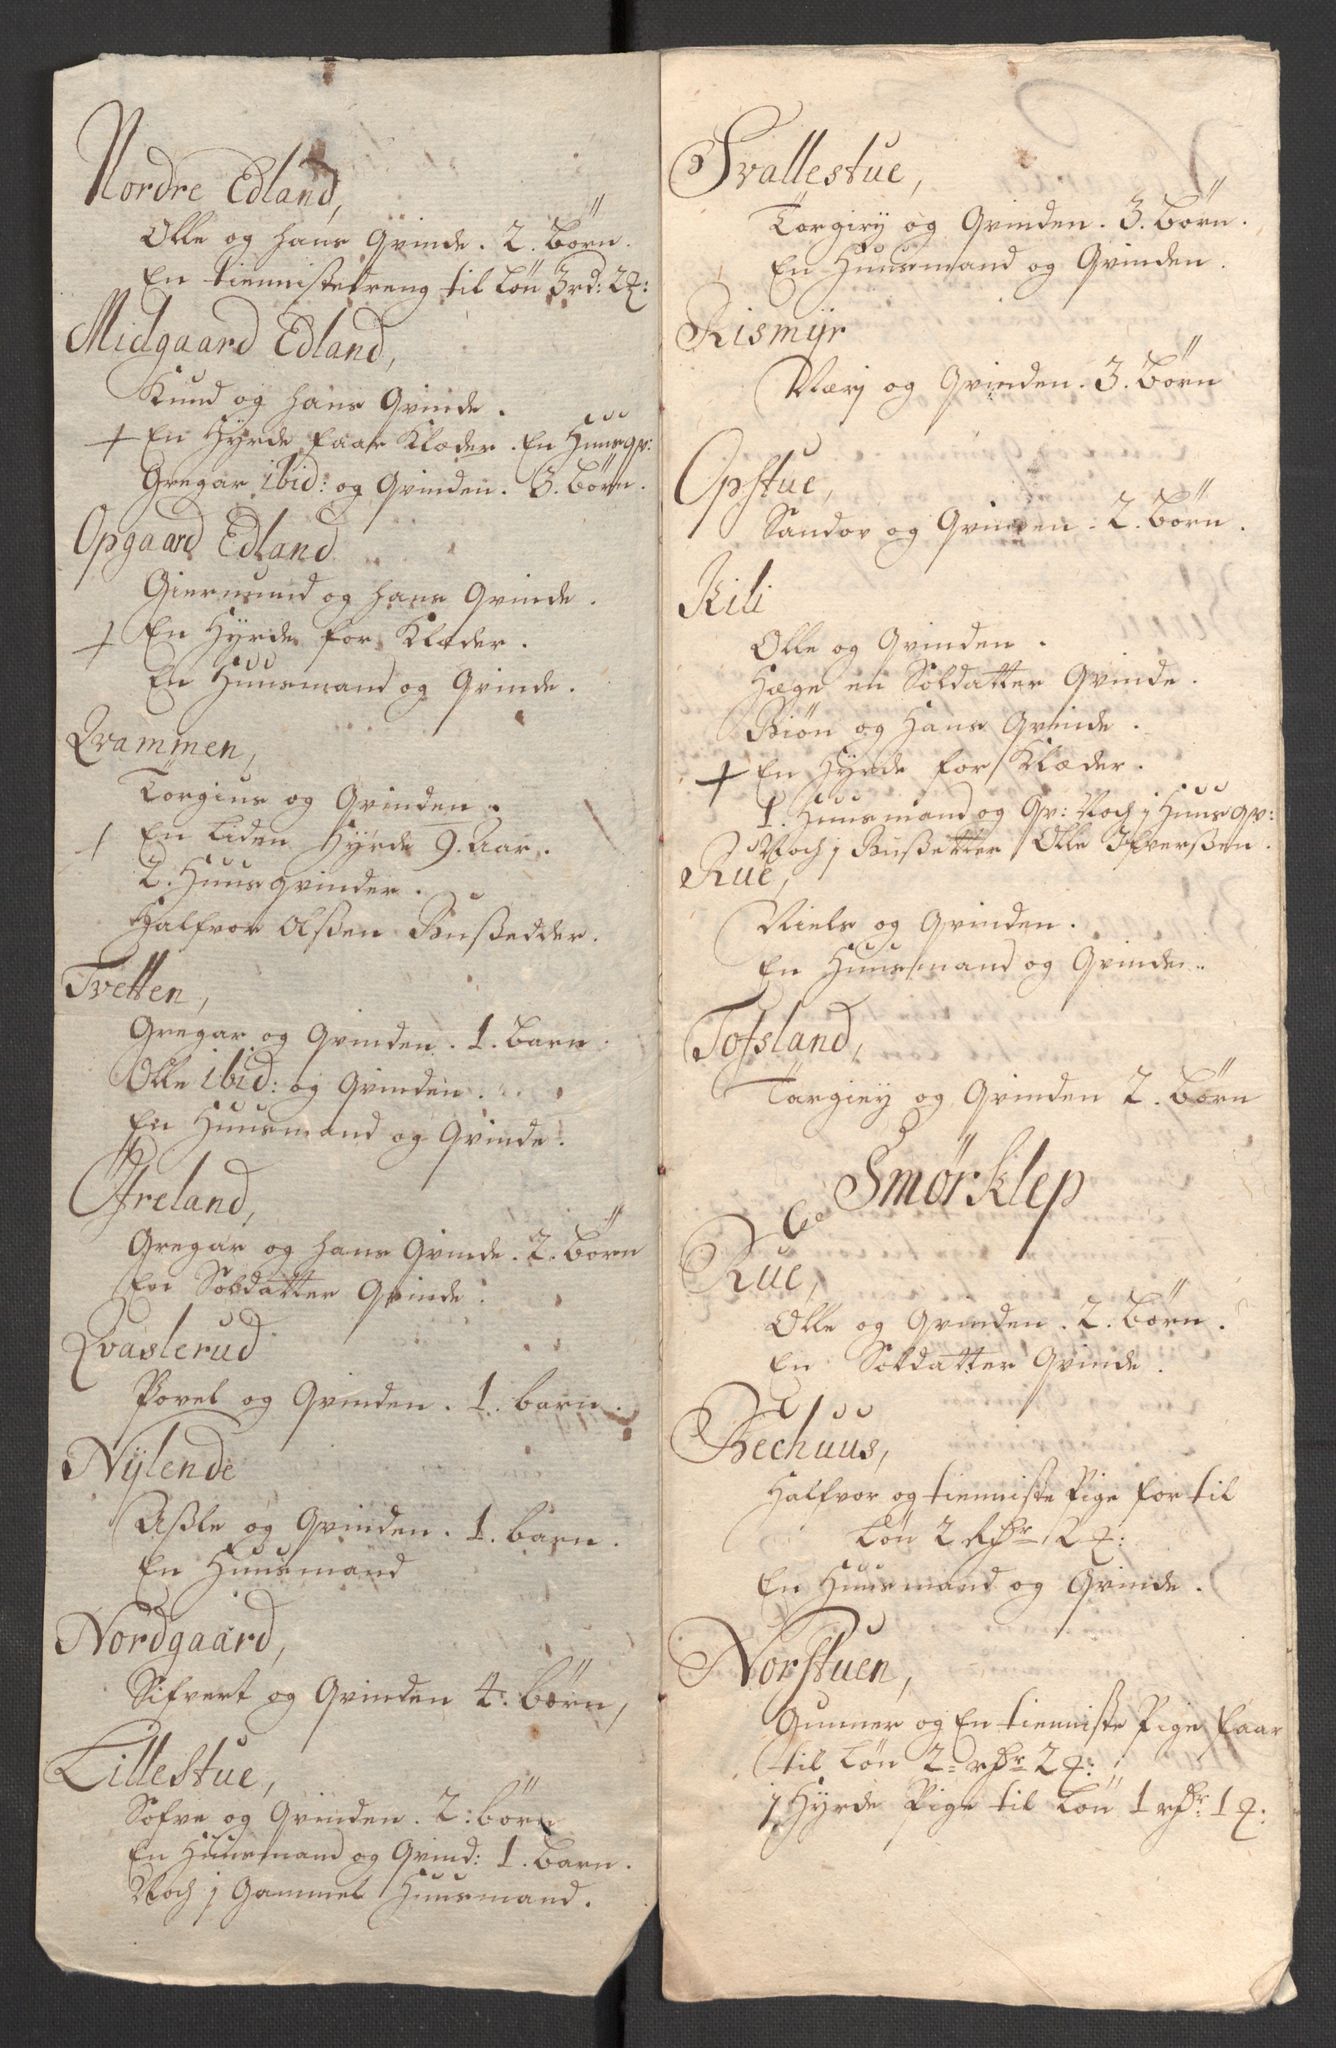 Nordre Edland,
Olle og hans Qvinde. 2. Börn.
En tiennistedreng til Lön 3rd: 2
Midgaard Edland,
Knud og hans Qvinde.
+ En Hyrde faar Klæder. En Huusqv:
Gregar ibid: og Qvinden. 3. Börn.
Opgaard Edland
Giermund og hans Qvinde.
+ En Hyrde for Klæder.
En Huusmand og Qvinde.
Qvammen,
Torgius og Qvinden.
+ En Liden Hyrde 9. Aar.
2. Huusqvinder.
Halfvor Olßen Bußedder.
Tvetten,
Gregar og Qvinden. 1. Barn.
Olle ibid: og Qvinden.
En Huusmand og Qvinde.
Öfreland,
Gregar og hans Qvinde. 2. Börn
En Soldatter Qvinde.
Qvaslerud
Povel og Qvinden. 1. barn.
Nÿlende
Aßle og Qvinden. 1. barn.
En Huusmand
Nordgaard,
Sifvert og Qvinden 4. börn,
Lillestue,
Sofve og Qvinden. 2: börn
En Huusmand og Qvind: 1. Barn.
Noch j Gammel Huusmand.
Svallestue,
Torgiery og Qvinden. 3. Börn.
En Huusmand og Qvinden.
Rismÿr
og Qvinden. 3. Börn
Opstue,
Sandov og Qvinden. 2. Börn.
Kili
Olle og Qvinden.
Hæge en Soldatter Qvinde.
Biön og Hans Qvinde.
+ En Hyrde for Klæder.
1. Huusmand og Qv: Noch j Huusqv:
Noch j Bußetter Olle Ifverßen.
Rue,
Niels og Qvinden.
En Huusmand og Qvinde.
Tofsland,
Targiey og Qvinden 2. Börn
Smörklep
Rue,
Olle og Qvinden. 2. Börn.
En Soldatter Qvinde.
Bechuus,
Halfvor og tienniste Pige for til
Lön 2 Rdr 2
En Huusmand og Qvinde.
Norstuen,
Gunner og En tienniste Pige faar
til Lön 2 rdr 2
j Hyrde Pige til Lön 1 rdr 1